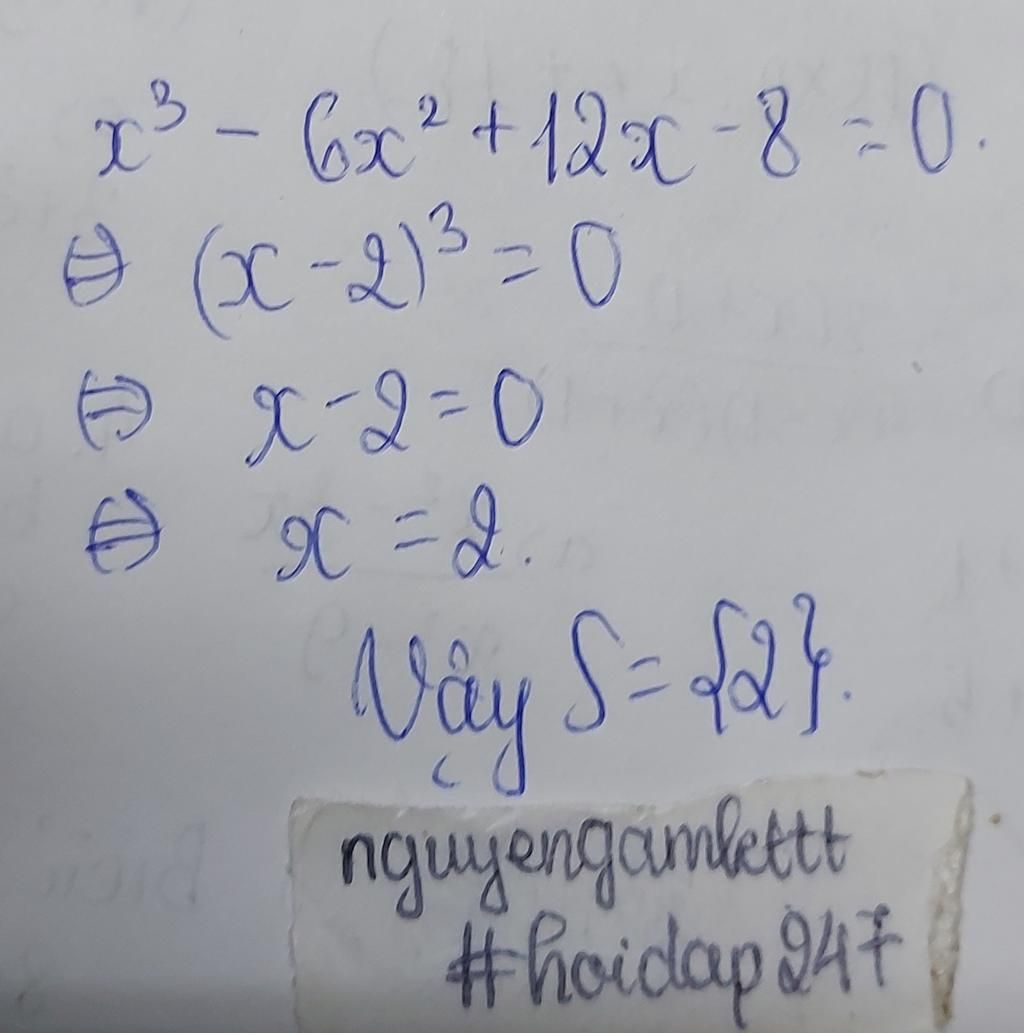 x³ - 6x² + 12x - 8 = 0.
⇔ (x - 2)³ = 0
⇔ x - 2 = 0
⇔ x = 2.
Vậy S = {2}.
nguyengamlettt
#hoidap247